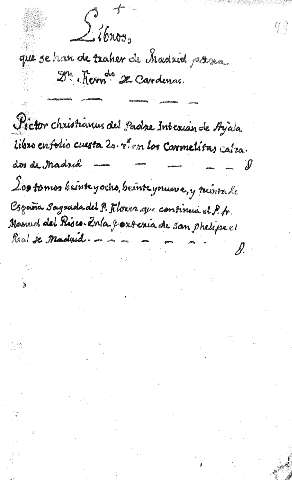 +
Libros,
que se han de traher de Madrid para
Dn. Herndo de Cardenas.
Pictor christianus del Padre Interián de Ayala
Libro en folio cuesta 20 rs. en los Carmelitas calza-
dos de Madrid — — — —
Los tomos beinte y ocho, beinte y nueve, y treinta de
España Sagrada del P. Florez, que continua el P. fr.
Manuel del Risco. En la porteria de San Phelipe el
Real de Madrid. — — — — —